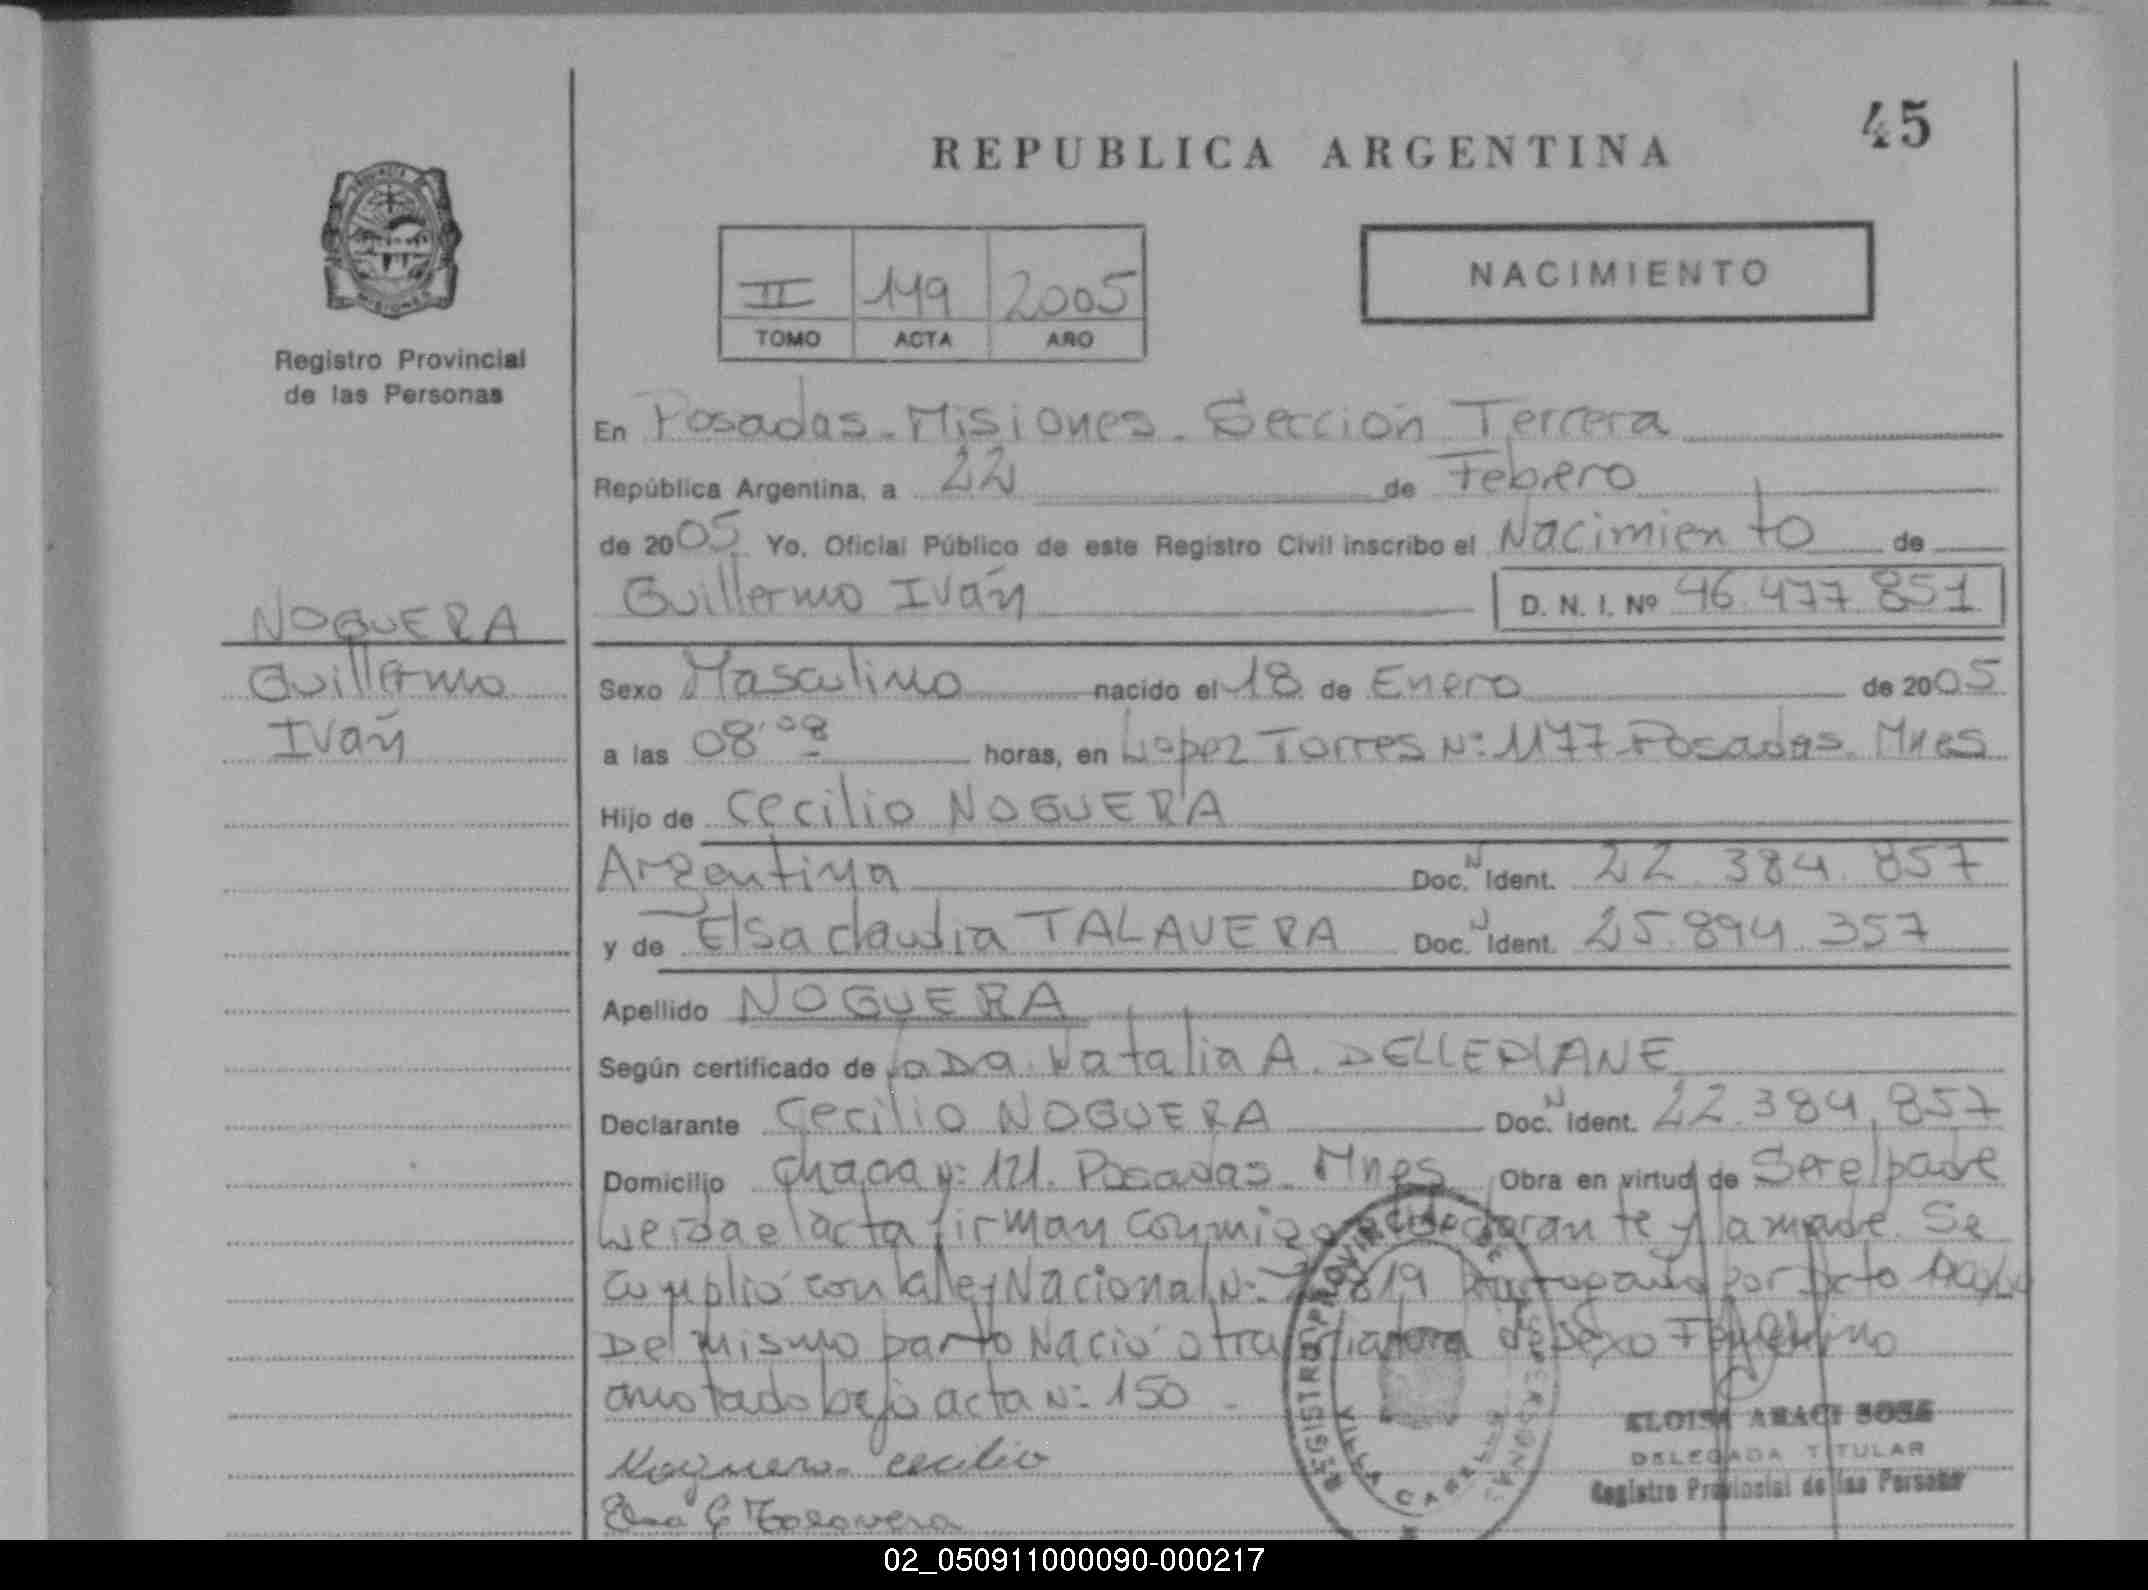 45
REPUBLICA ARGENTINA
PROVINCIA
MISIONES
Registro Provincial
de las Personas
II 149 2005
TOMO ACTA AÑO
NACIMIENTO
En Posadas - Misiones - Sección Tercera
República Argentina, a 22 de Febrero
de 2005 Yo, Oficial Público de este Registro Civil inscribo el Nacimiento de
Guillermo Iván D. N. I. Nº 46.477.851
NOGUERA
Guillermo
Iván
Sexo Masculino nacido el 18 de Enero de 2005
a las 08'08 horas, en Lopez Torres Nº: 1177 Posadas. Mnes
Hijo de Cecilio NOGUERA
Argentina Doc. N Ident. 22.384.857
y de Elsa claudia TALAVERA Doc. N Ident. 25.894.357
Apellido NOGUERA
Según certificado de la Dra. Natalia A. DELLEPIANE
Declarante Cecilio NOGUERA Doc. N Ident. 22.384.857
Domicilio chacra Nº: 121. Posadas - Mnes Obra en virtud de Ser el padre
Leida el acta firman conmigo el declarante y la madre. Se
cumplió con la ley Nacional Nº: 819 por
Del mismo parto Nació otra de sexo Femenino
anotado bajo acta Nº: 150
Noguera Cecilio
Elsa C Talavera
REGISTRO PROVINCIAL DE LAS PERSONAS
VILLA CABELLO
ELOISA ARACI SOSA
DELEGADA TITULAR
Registro Provincial de las Personas
02_050911000090-000217